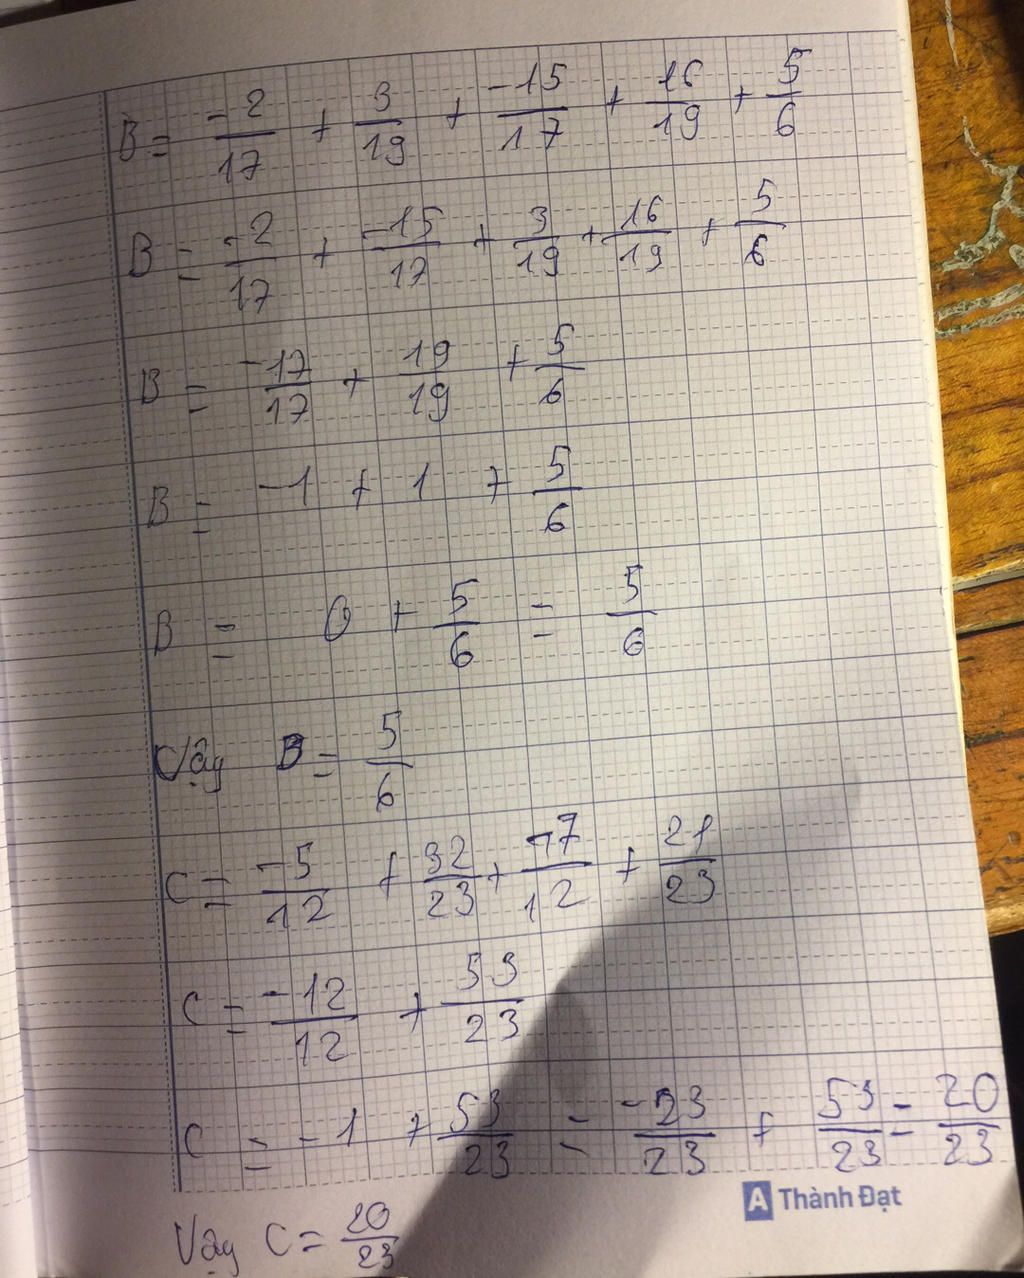 B = -2/17 + 3/19 + -15/17 + 16/19 + 5/6
B = -2/17 + -15/17 + 3/19 + 16/19 + 5/6
B = -17/17 + 19/19 + 5/6
B = -1 + 1 + 5/6
B = 0 + 5/6 = 5/6
Vậy B = 5/6
C = -5/12 + 32/23 + -7/12 + 21/23
C = -12/12 + 53/23
C = -1 + 53/23 = -23/23 + 53/23 = 20/23
A Thành Đạt
Vậy C = 20/23